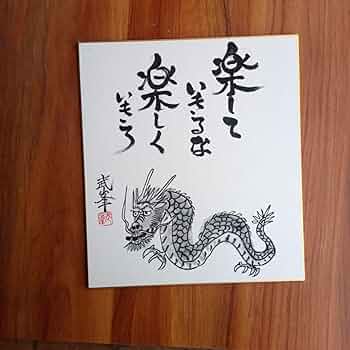 楽して
いきるな
楽しく
いきろ
武峯